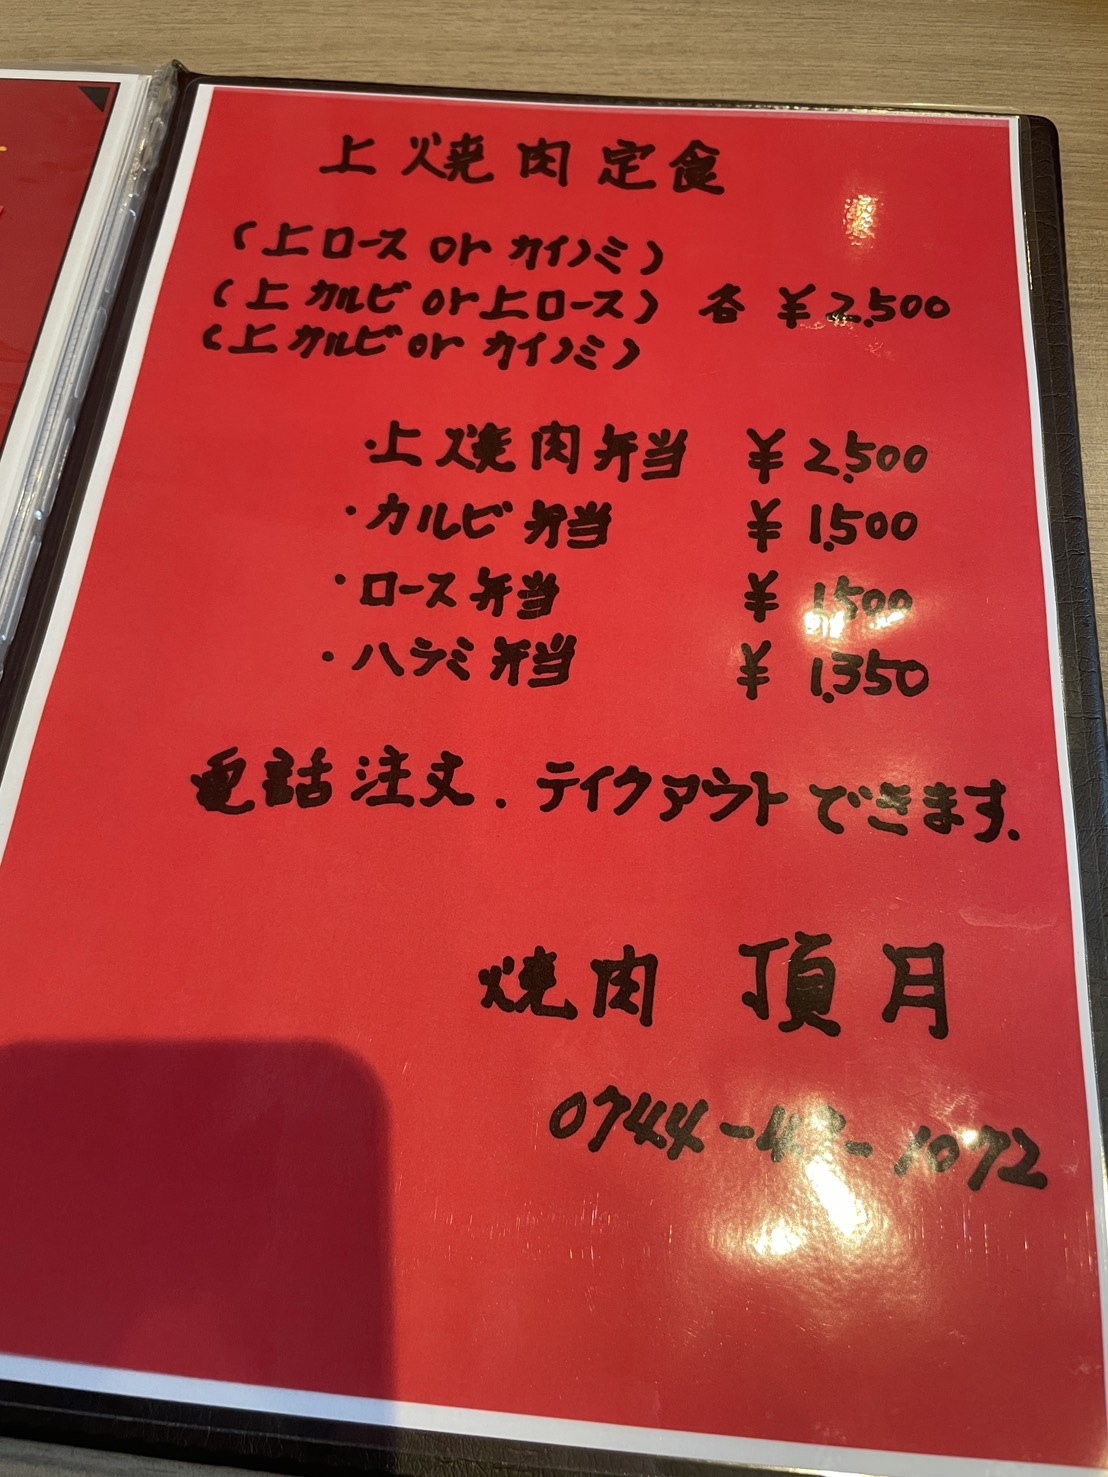 上焼肉定食
(上ロース or カイノミ)
(上カルビ or 上ロース) 各 ¥2.500
(上カルビ or カイノミ)
・上焼肉弁当 ¥2.500
・カルビ弁当 ¥1.500
・ロース弁当 ¥1500
・ハラミ弁当 ¥1.350
電話注文.テイクアウトできます.
焼肉 頂月
0744-43-1072